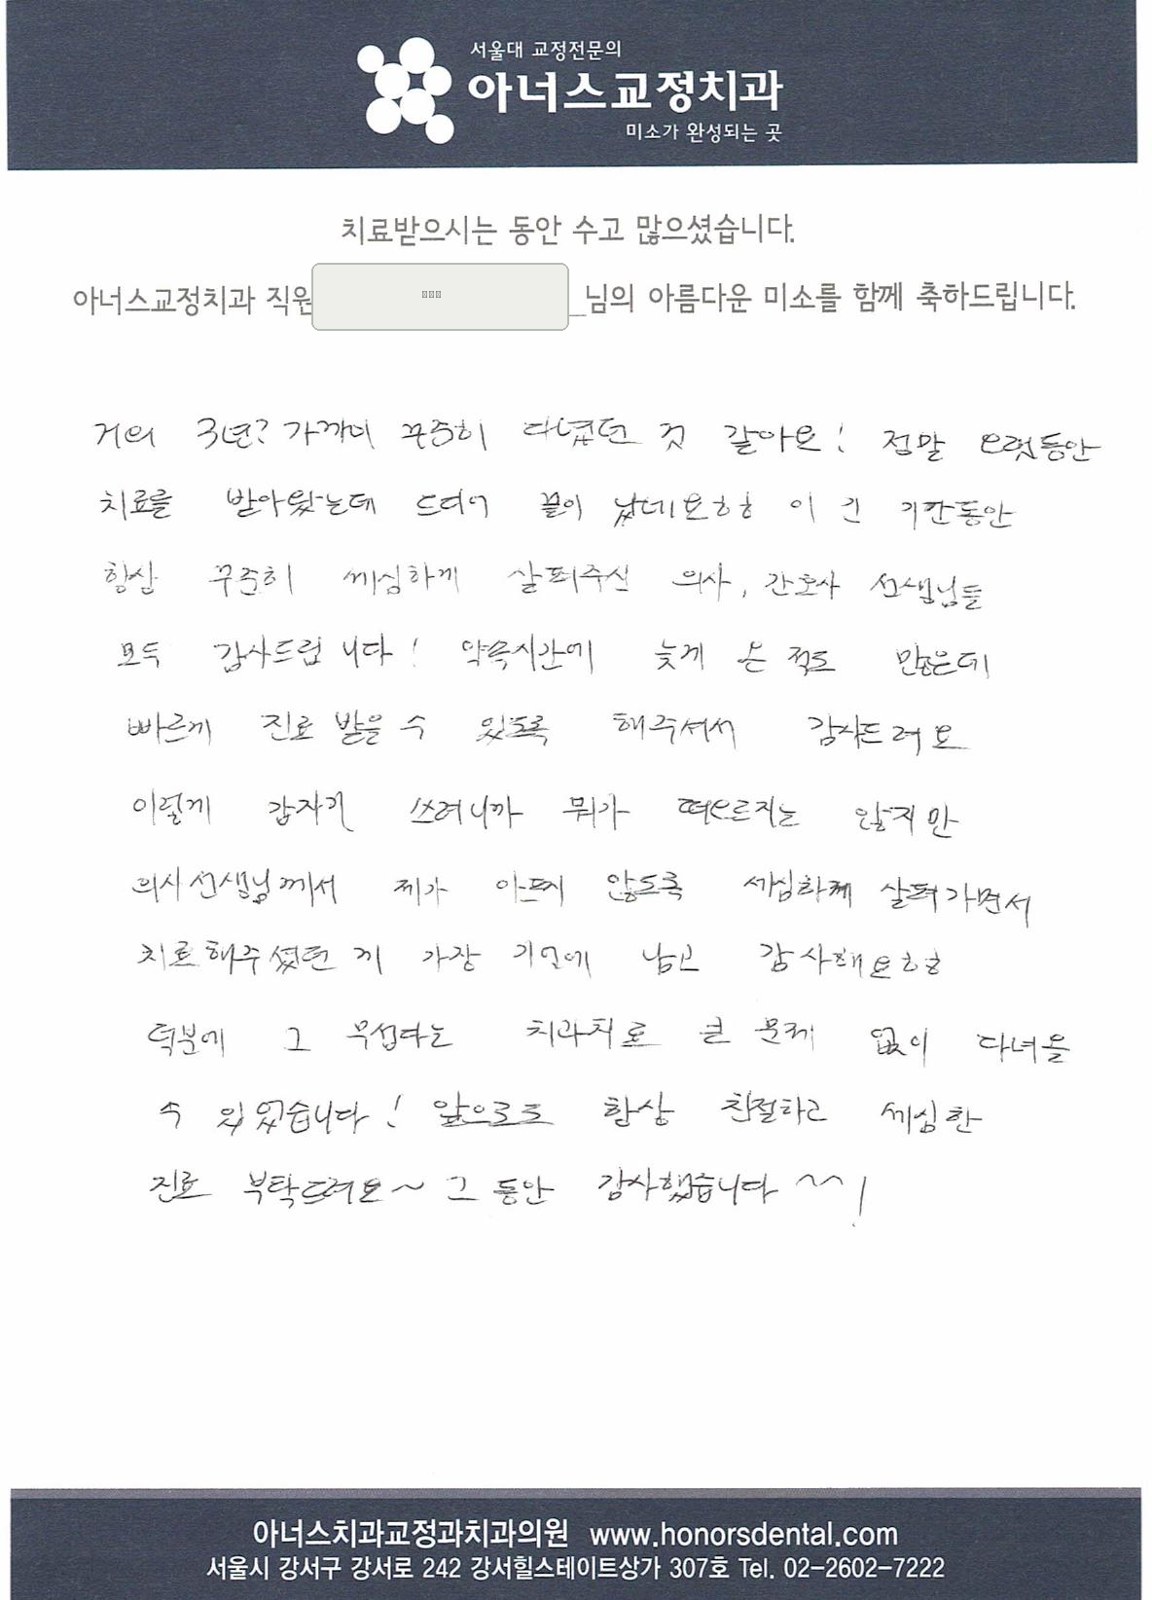 서울대 교정전문의
아너스교정치과
미소가 완성되는 곳
치료받으시는 동안 수고 많으셨습니다.
아너스교정치과 직원 님의 아름다운 미소를 함께 축하드립니다.
거의 3년? 가까이 꾸준히 다녔던 것 같아요! 정말 오랫동안
치료를 받아왔는데 드디어 끝이 났네요ㅎㅎ 이 긴 기간동안
항상 꾸준히 세심하게 살펴주신 의사, 간호사 선생님들
모두 감사드립니다! 약속시간에 늦게 온 적도 많은데
빠르게 진료 받을 수 있도록 해주셔서 감사드려요
이렇게 갑자기 쓰려니까 뭐가 떠오르지는 않지만
의사선생님께서 제가 아프지 않도록 세심하게 살펴가면서
치료해주셨던 게 가장 기억에 남고 감사해요ㅎㅎ
덕분에 그 무섭다는 치과치료 큰 문제 없이 다녀올
수 있었습니다! 앞으로도 항상 친절하고 세심한
진료 부탁드려요~ 그 동안 감사했습니다 ^^!
아너스치과교정과치과의원 www.honorsdental.com
서울시 강서구 강서로 242 강서힐스테이트상가 307호 Tel. 02-2602-7222